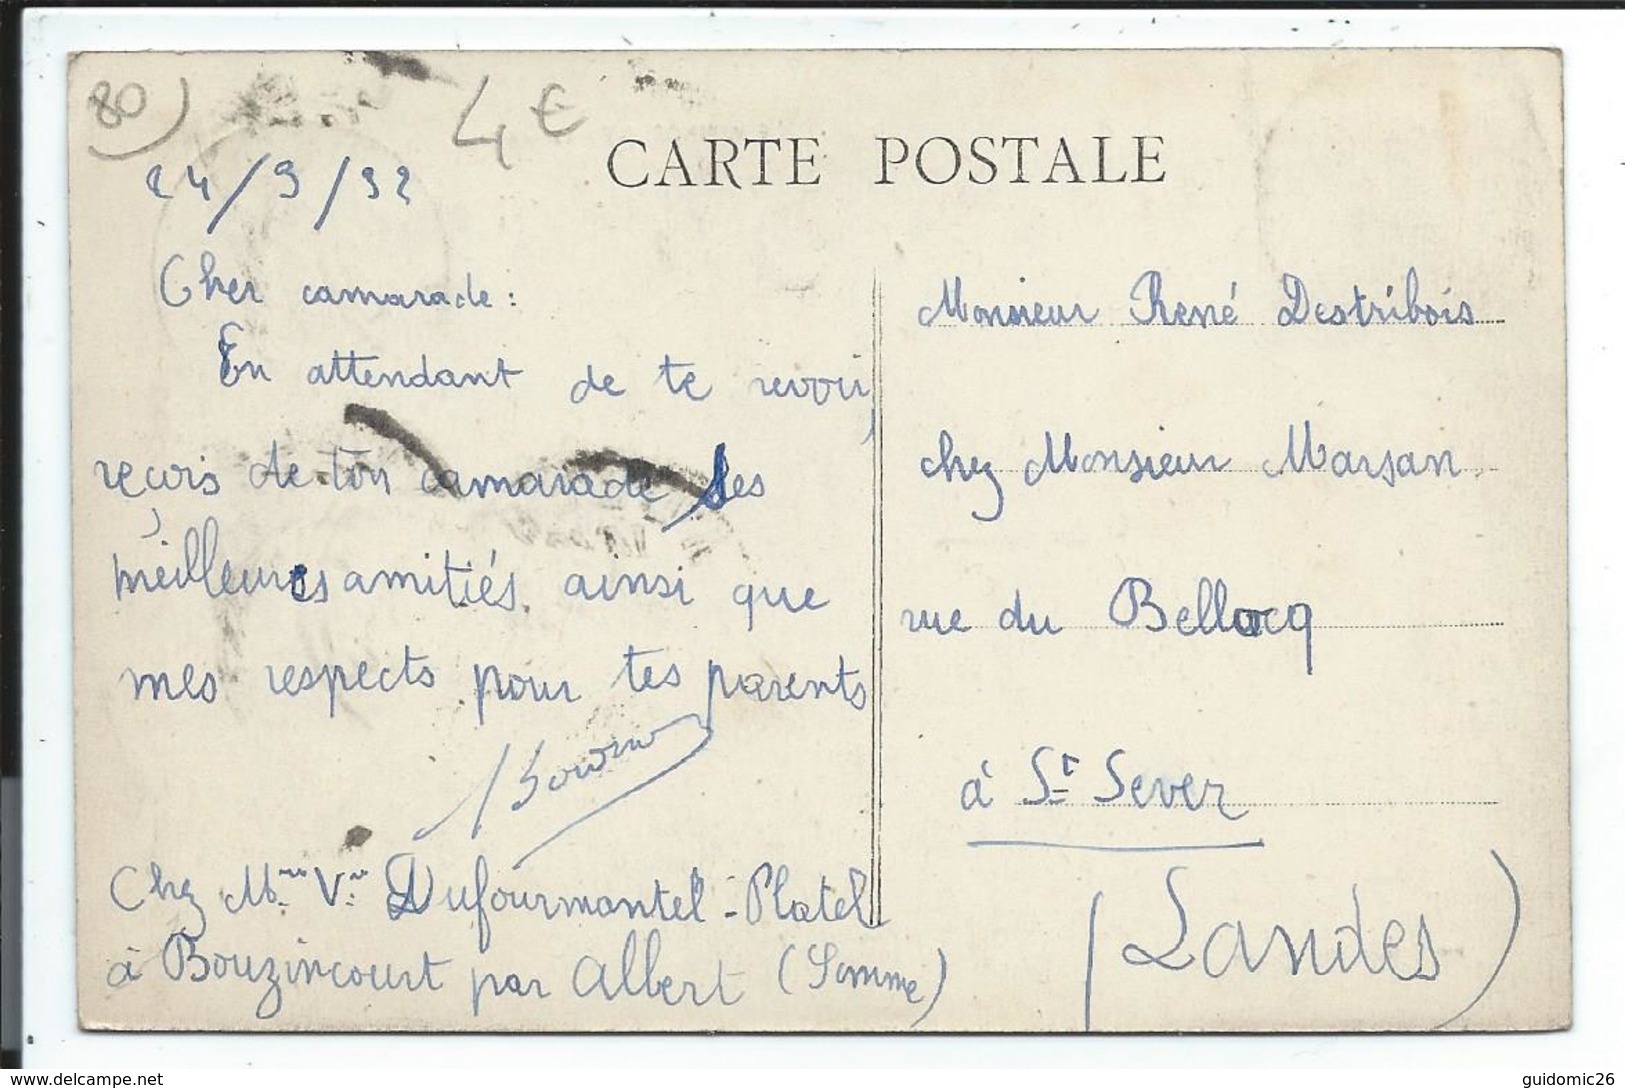 80)
4 €
CARTE POSTALE
24/9/32
Cher camarade :
En attendant de te revoir,
reçois de ton camarade ses
meilleures amitiés ainsi que
mes respects pour tes parents
Chez Mme Vve Dufourmantel-Platel
à Bouzincourt par Albert (Somme)
Monsieur René Destribois
chez Monsieur Marsan
rue du Bellocq
à St Sever
(Landes)
www.delcampe.net
guidomic26